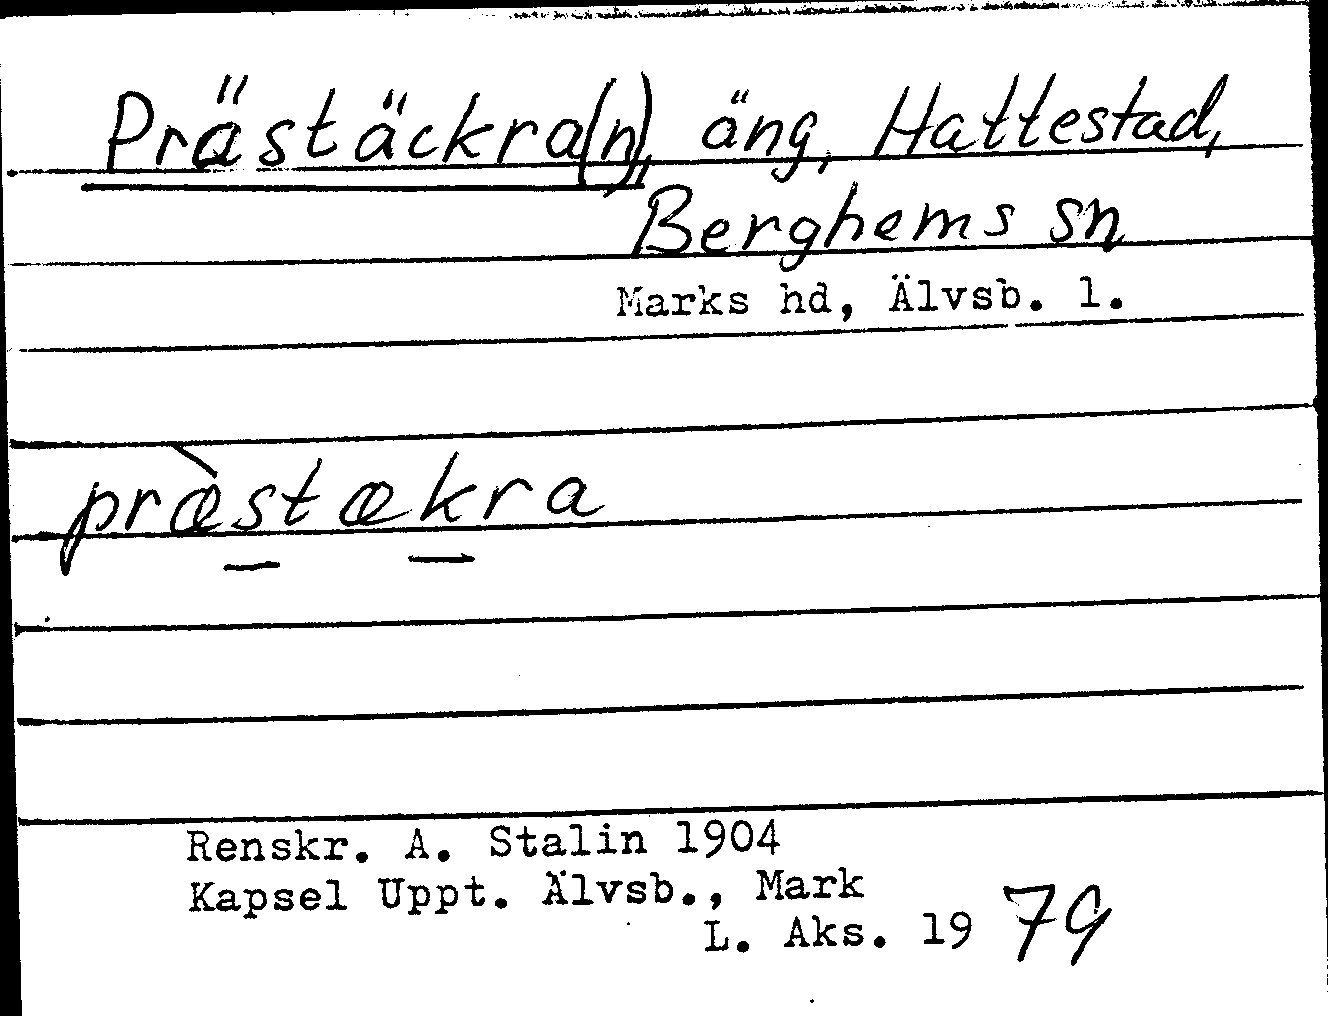 Prästäckra(n), äng, Hattestad,
Berghems sn
Marks hd, Älvsb. l.
præ̀stækra
Renskr. A. Stalin 1904
Kapsel Uppt. Älvsb., Mark
L. Aks. 1979